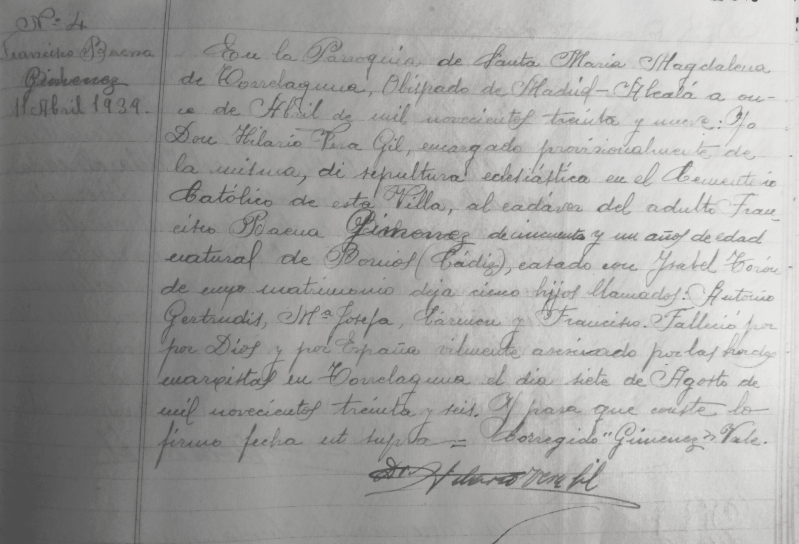 Nº 4
Francisco Baena
Gimenez
11 Abril 1939.
En la Parroquia de Santa Maria Magdalena
de Torrelaguna, Obispado de Madrid-Alcalá a on-
ce de Abril de mil novecientos treinta y nueve: Yo
Don Hilario Vera Gil, encargado provisionalmente de
la misma, di sepultura eclesiástica en el Cementerio
Católico de esta Villa, al cadáver del adulto Fran-
cisco Baena Gimenez de cincuenta y un años de edad
natural de Bornos (Cádiz), casado con Ysabel
de cuyo matrimonio deja cinco hijos llamados: Antonio
Gertrudis, Mª Josefa, Cármen y Francisco. Falleció por
por Dios y por España vilmente asesinado por las hordas
marxistas en Torrelaguna el dia siete de Agosto de
mil novecientos treinta y seis. Y para que conste lo
firmo fecha ut supra = Corregido "Gimenez" Vale.
Dn Hilario Vera Gil